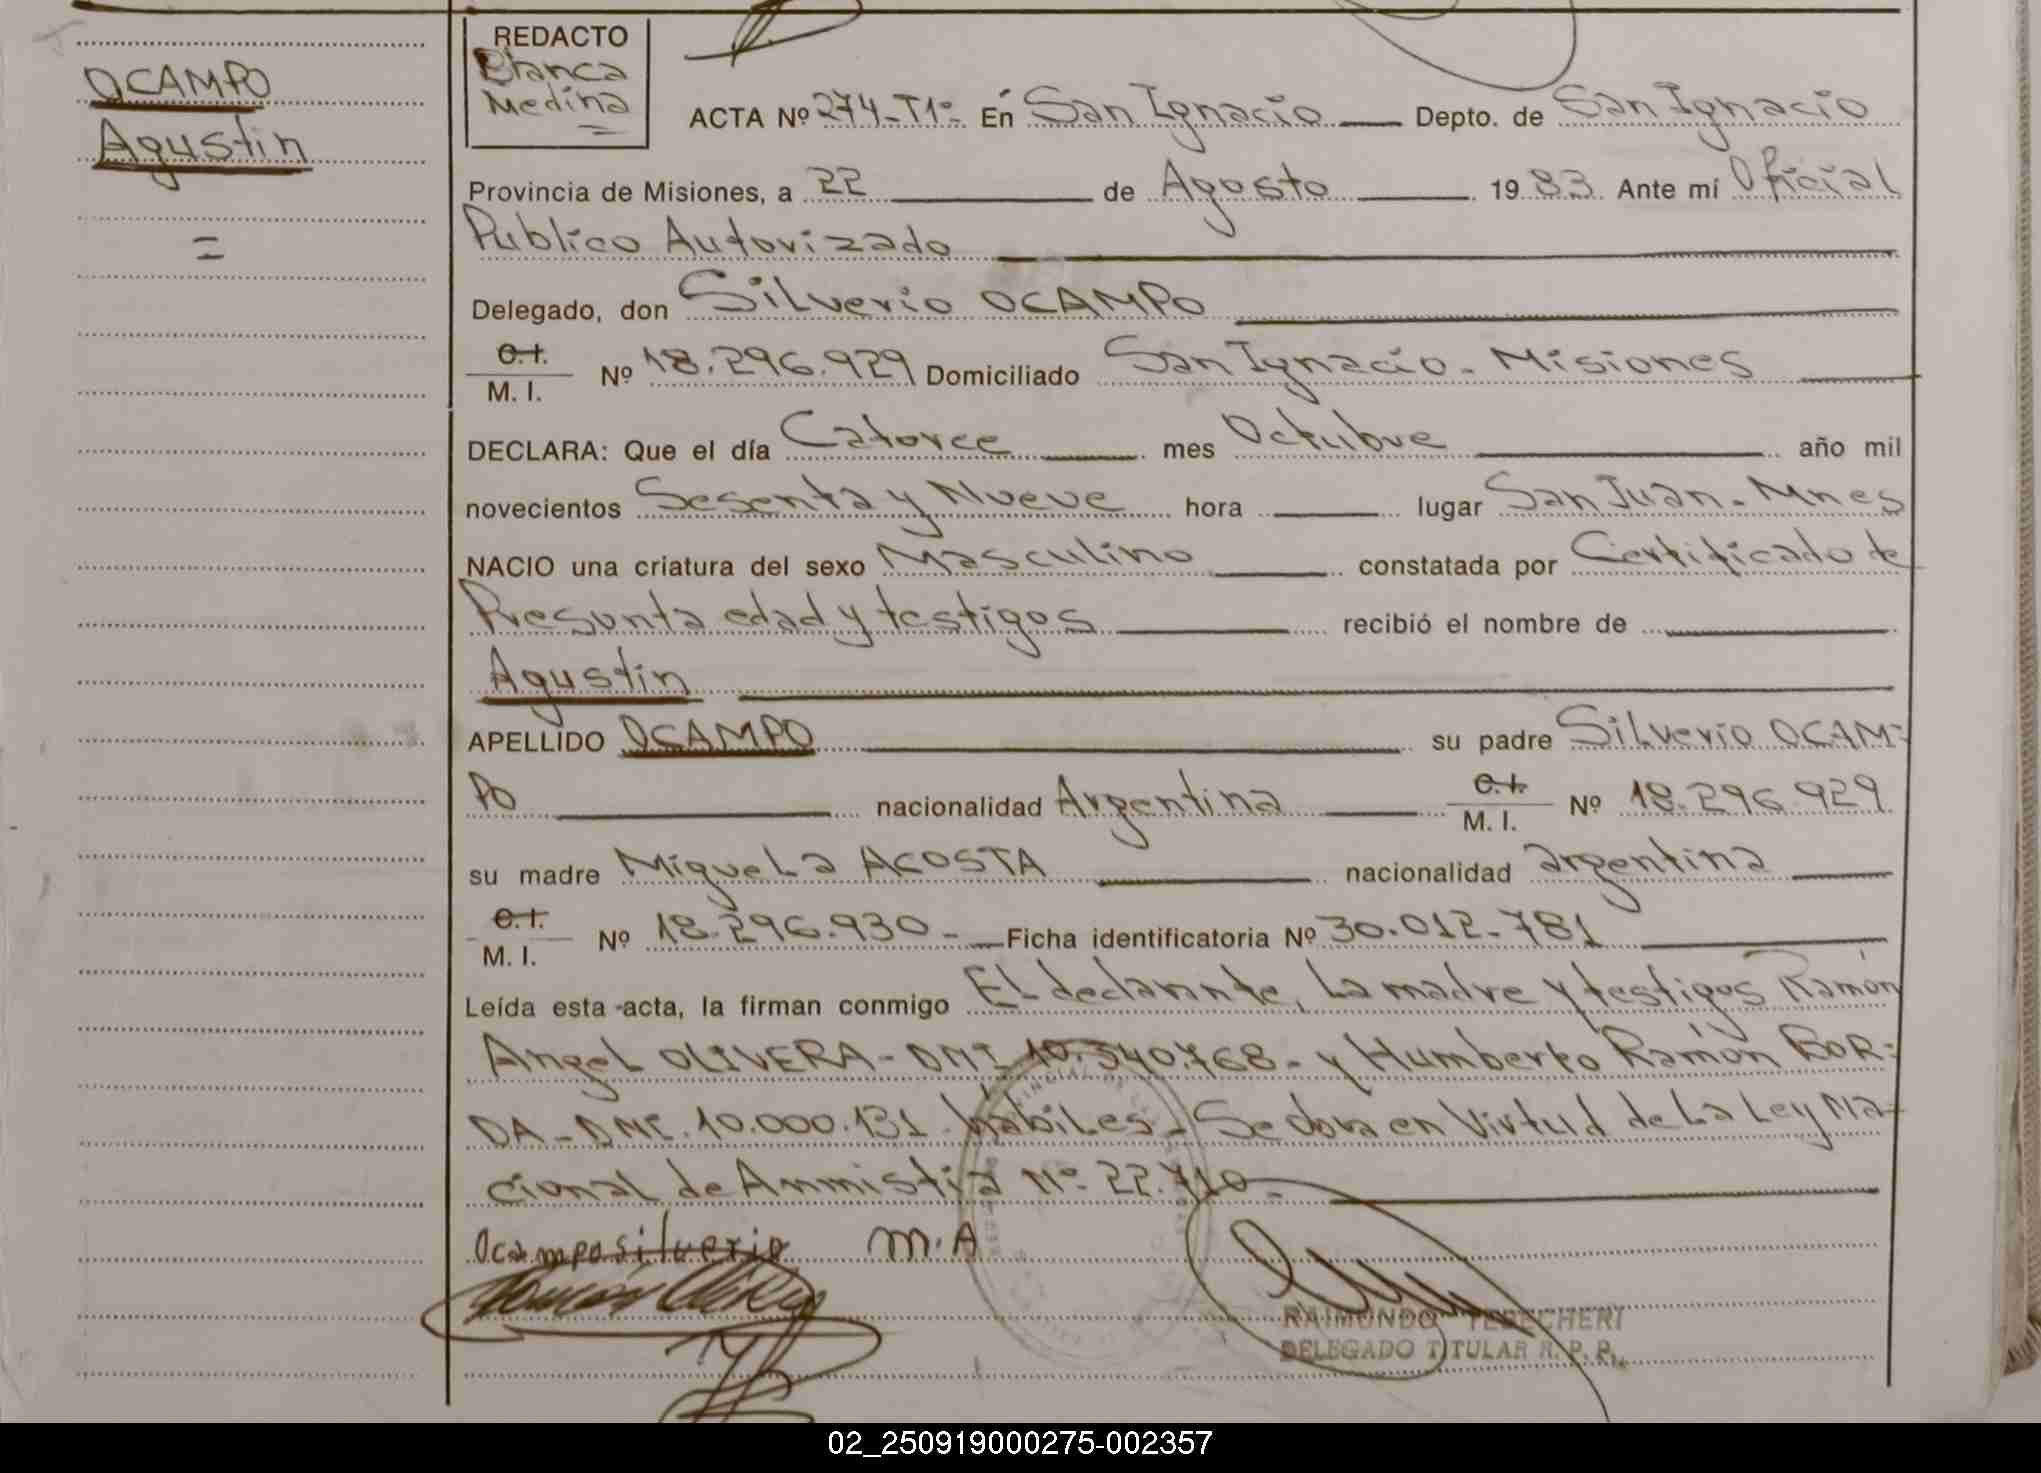 OCAMPO
Agustin
=
REDACTO
Blanca
Medina
ACTA Nº 274-T1º- En San Ignacio Depto. de San Ignacio
Provincia de Misiones, a 22 de Agosto 1983. Ante mí Oficial
Publico Autorizado
Delegado, don Silverio OCAMPO
C.I.
M. I. Nº 18.296.929 Domiciliado San Ignacio - Misiones
DECLARA: Que el día Catorce mes Octubre año mil
novecientos Sesenta y Nueve hora lugar San Juan - Mnes
NACIO una criatura del sexo Masculino constatada por Certificado de
Presunta edad y testigos recibió el nombre de
Agustin
APELLIDO OCAMPO su padre Silverio OCAM-
PO nacionalidad Argentina C.I.
M. I. Nº 18.296.929
su madre Miguela ACOSTA nacionalidad argentina
C.I.
M. I. Nº 18.296.930- Ficha identificatoria Nº 30.012.781
Leída esta acta, la firman conmigo El declarante, La madre y testigos Ramón
Angel OLIVERA - DNI 10.540.768- y Humberto Ramón BOR-
DA - DNI. 10.000.131. habiles - Se labra en Virtud de La Ley Na-
cional de Anmistia Nº 22.710-
Ocampo silverio M.A
RAIMUNDO TEDECHERI
DELEGADO TITULAR R. P. P.
02_250919000275-002357